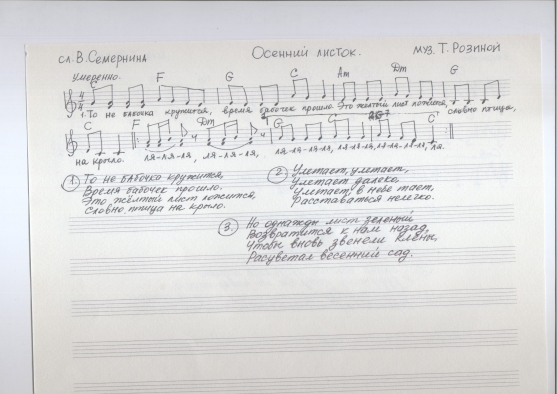 сл. В. Семернина Осенний листок. муз. Т. Розиной
Умеренно.
C F G C Am Dm G
1. То не бабочка кружится, время бабочек прошло. Это жёлтый лист ложится, словно птица,
C F Dm G C C
на крыло. ля-ля-ля, ля-ля-ля, ля-ля-ля-ля-ля-ля-ля-ля-ля-ля-ля-ля.
1 То не бабочка кружится,
Время бабочек прошло.
Это жёлтый лист ложится,
Словно птица на крыло.
2 Улетает, улетает,
Улетает далеко,
Улетает, в небе тает,
Расставаться нелегко.
3. Но однажды лист зеленый
Возвратится к нам назад,
Чтобы вновь звенели клёны,
Расцветал весенний сад.